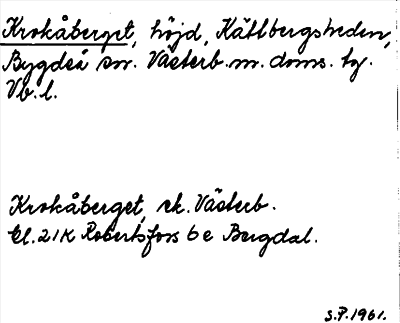 Krokåberget, höjd, Kättbergsheden,
Bygdeå sn. Västerb. m. doms. tg.
Vb. l.
Krokåberget, ek. Västerb.
Bl. 21K Robertsfors 6 e Bergdal.
S.P. 1961.